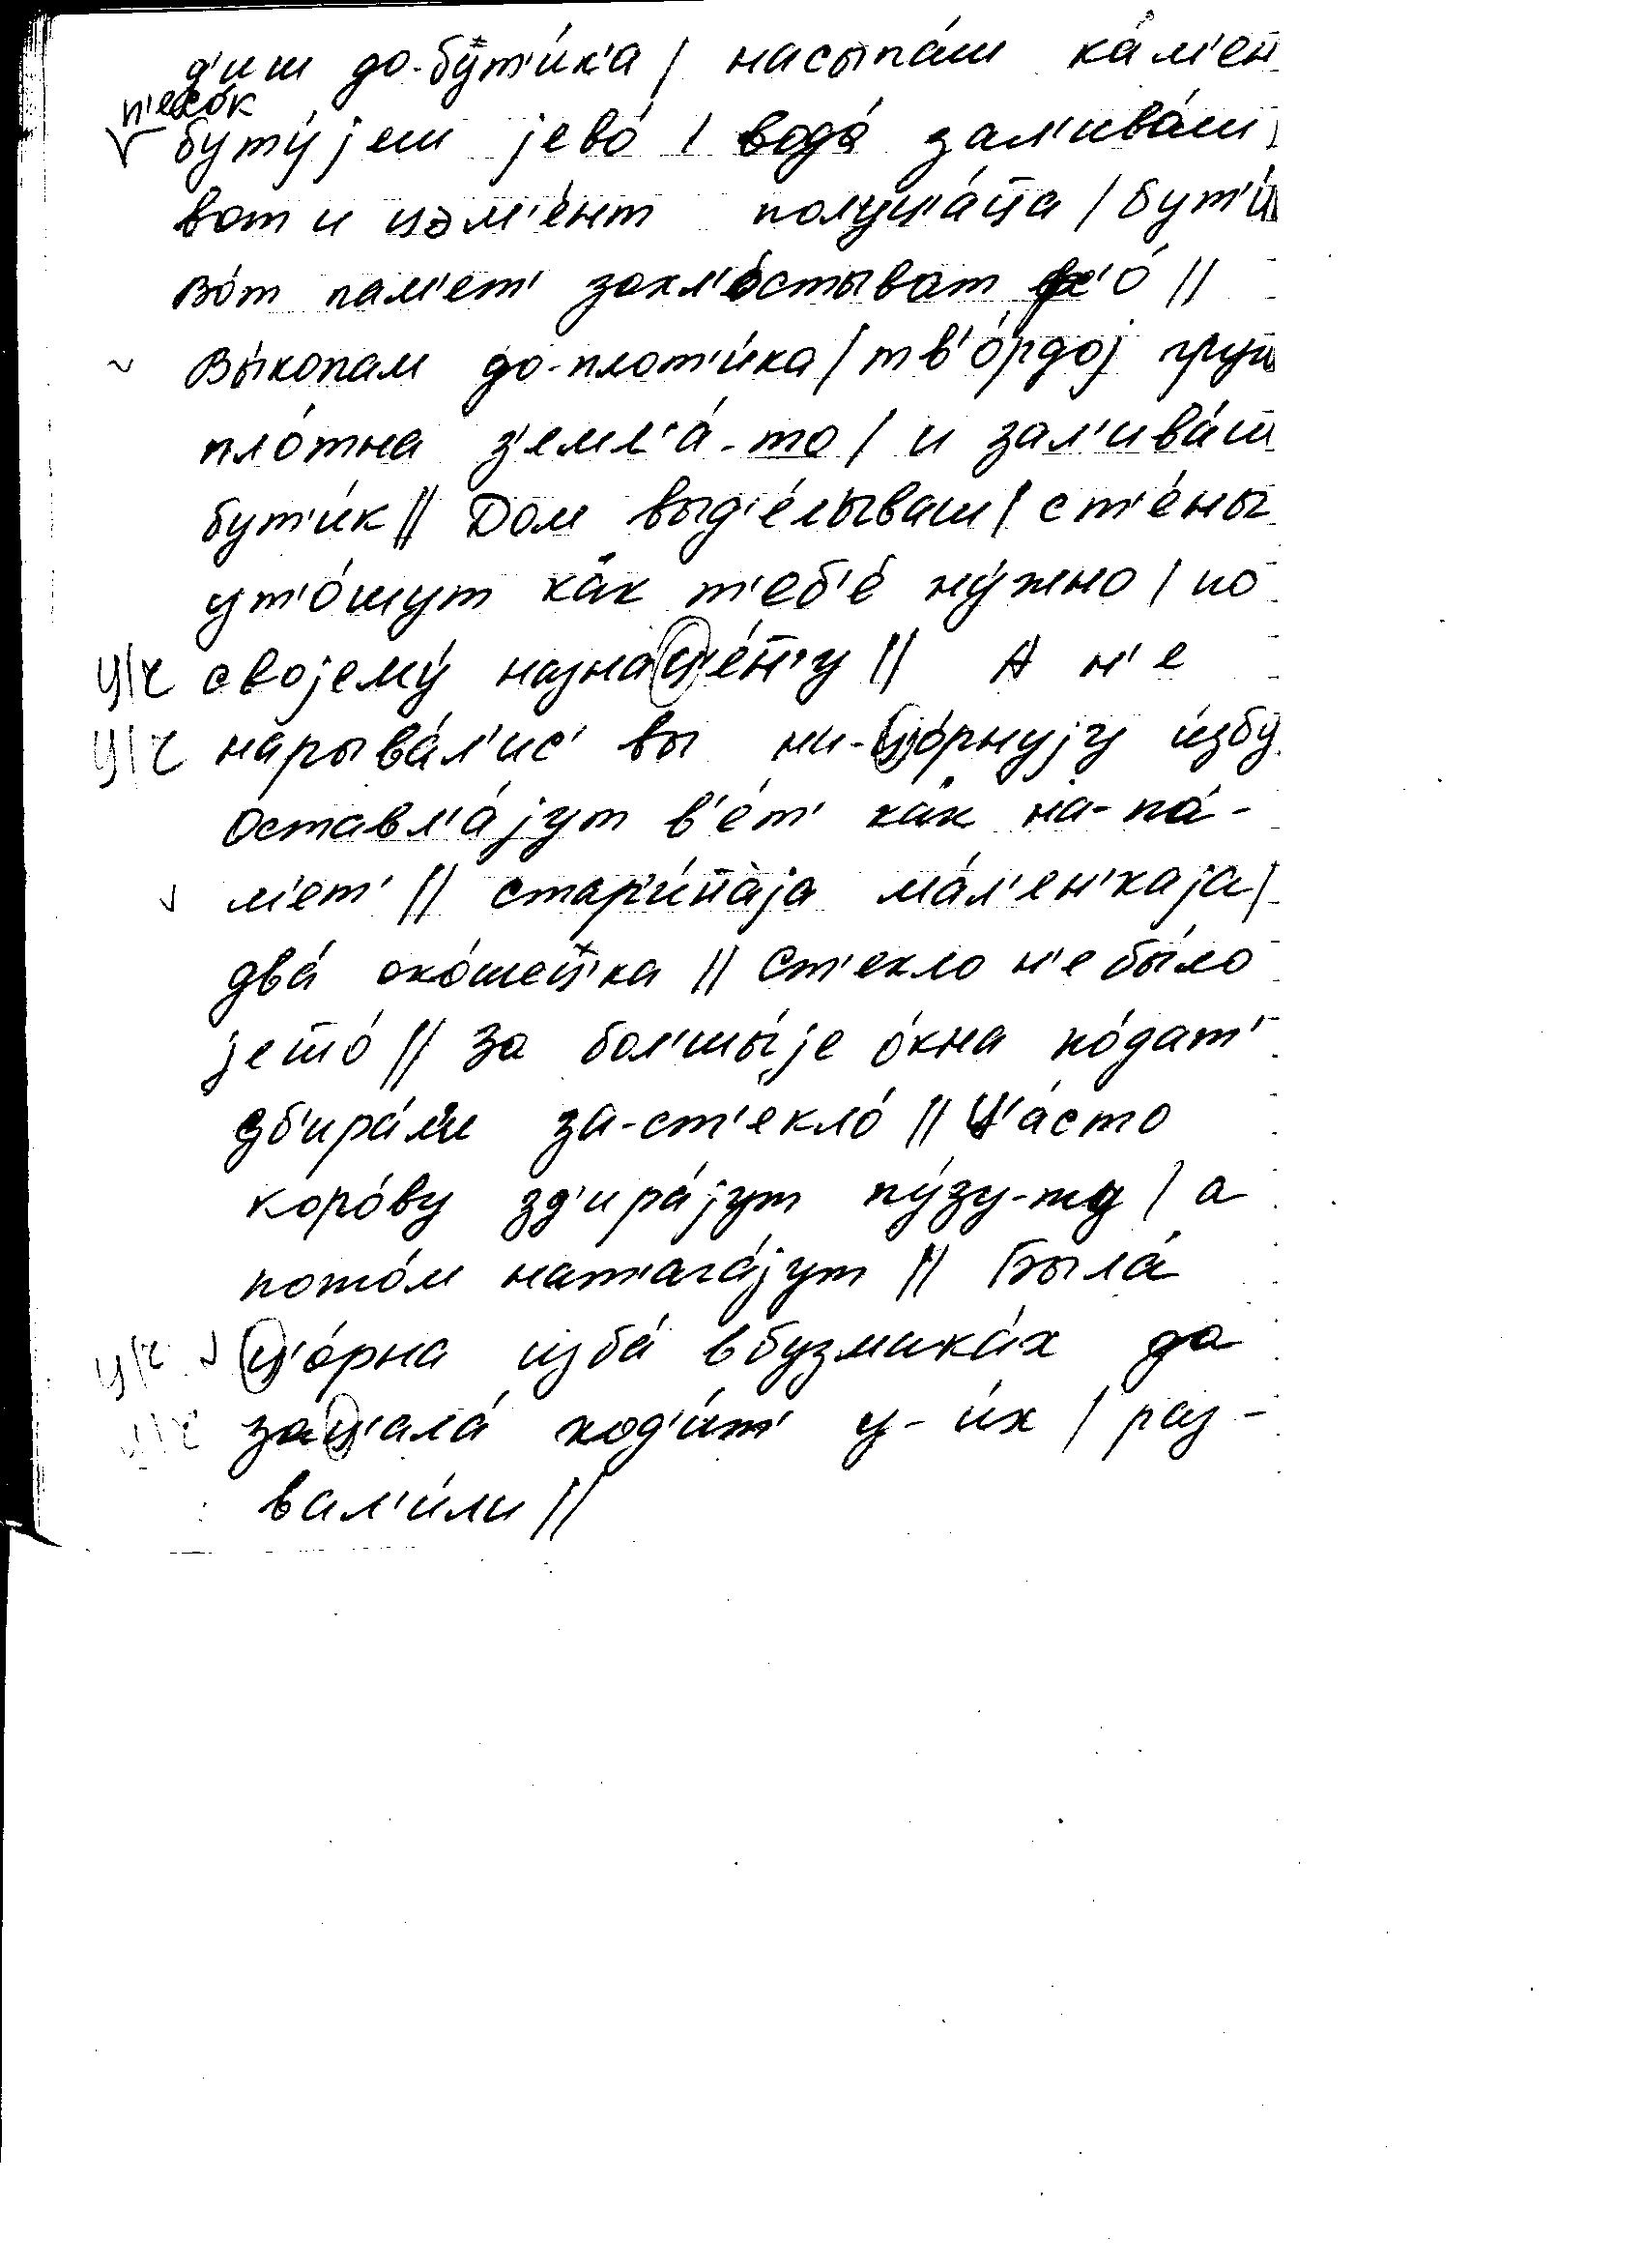 д'иш до-бут'и́к'а / насыпа́ш ка́м'ен̄
п'есо́к
буту́јеш јево́ / вода́ зал'ива́ш /
вот и цэм'е́нт получ'а́ц̄а / бут'и́
во́т пам'ет' захл'о́стыват
вы́копам до-плот'и́ка / тв'о́рдој грун
пло́тна з'емл'а́-то / и зал'ива́ш
бут'и́к // Дом выд'е́лываш / ст'е́ны
ут'о́шут ка́к т'еб'е́ ну́жно / по
ц/ч своjему́ назнац'е́н̄'у // А н'е
ц/ч нарыва́л'ис' вы ни-ц'о́рнујy избу́
Оставл'а́јут в'е́т' ка́к на-па́-
м'ет' // стар'и́н̄аја ма́л'ен'каја /
два́ око́шец'ка // Ст'екло н'е бы́ло
јешо́ // За бол'шы́је о́кна по́дат'
зб'ира́л'и за-ст'екло́ // Ц'а́сто
коро́ву зд'ира́јут пу́зу-ту / а
пото́м нат'ага́јут // Была́
ц/ч ц'о́рна изба́ в бузмика́х да
ц/ч зац'ала́ ход'и́т' у-и́х / раз-
вал'и́ли //